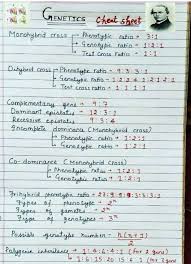 GENETICS Cheat sheet
Monohybrid cross Phenotypic ratio = 3:1
Genotypic ratio = 1:2:1
Test cross ratio = 1:1
Dihybrid cross Phenotypic ratio = 9:3:3:1
Genotypic ratio =
Test cross ratio =
Complementary gene = 9:7
Dominant epistatis = 12:3:1
Recessive epistatis = 9:3:4
Incomplete dominance (Monohybrid cross)
Phenotypic ratio = 1:2:1
Genotypic ratio = 1:2:1
Co-dominance (Monohybrid cross)
Phenotypic ratio = 1:2:1
Genotypic ratio = 1:2:1
Trihybrid phenotypic ratio =
Types of phenotype = 2ⁿ
Types of gametes = 2ⁿ
Types of genotypes = 3ⁿ
Possible genotype number = n(n+1)
2
Polygenic inheritance = 1:4:6:4:1 (for 2 gene)
= 1:6:15:20:15:6:1 (for 3 gene)